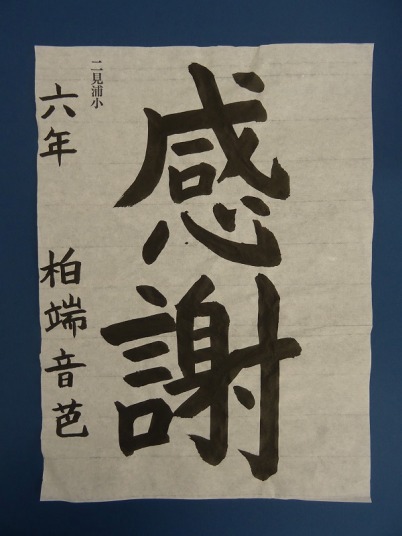 感謝
二見浦小
六年 柏端音芭